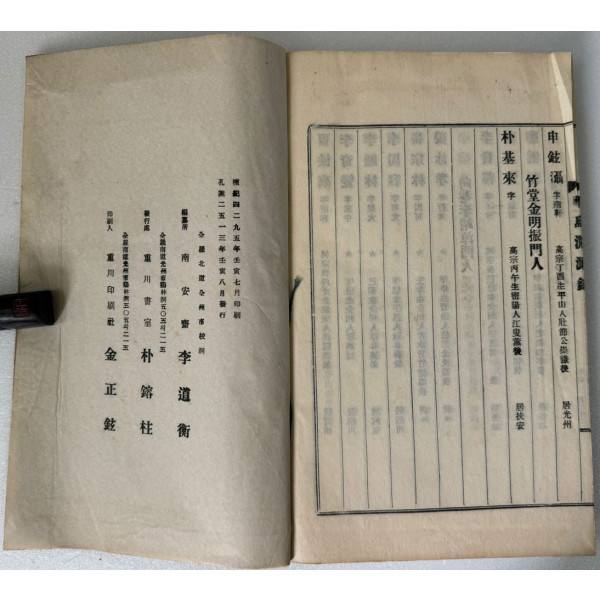 申鉉
高宗丁酉生平山人壯節公崇謙後
居光州
竹堂金明振門人
朴基來 字
高宗丙午生密陽人江叟薰後
居扶安
檀紀四二九五年壬寅七月印刷
孔誕二五一三年壬寅八月發行
全羅北道全州市校洞
編纂所 南安齋 李道衡
全羅南道光州市鶴林洞五〇五의二一五
發行處 重川書室 朴鎔柱
全羅南道光州市鶴林洞五〇五의二一五
印刷人 重川印刷社 金正鉉